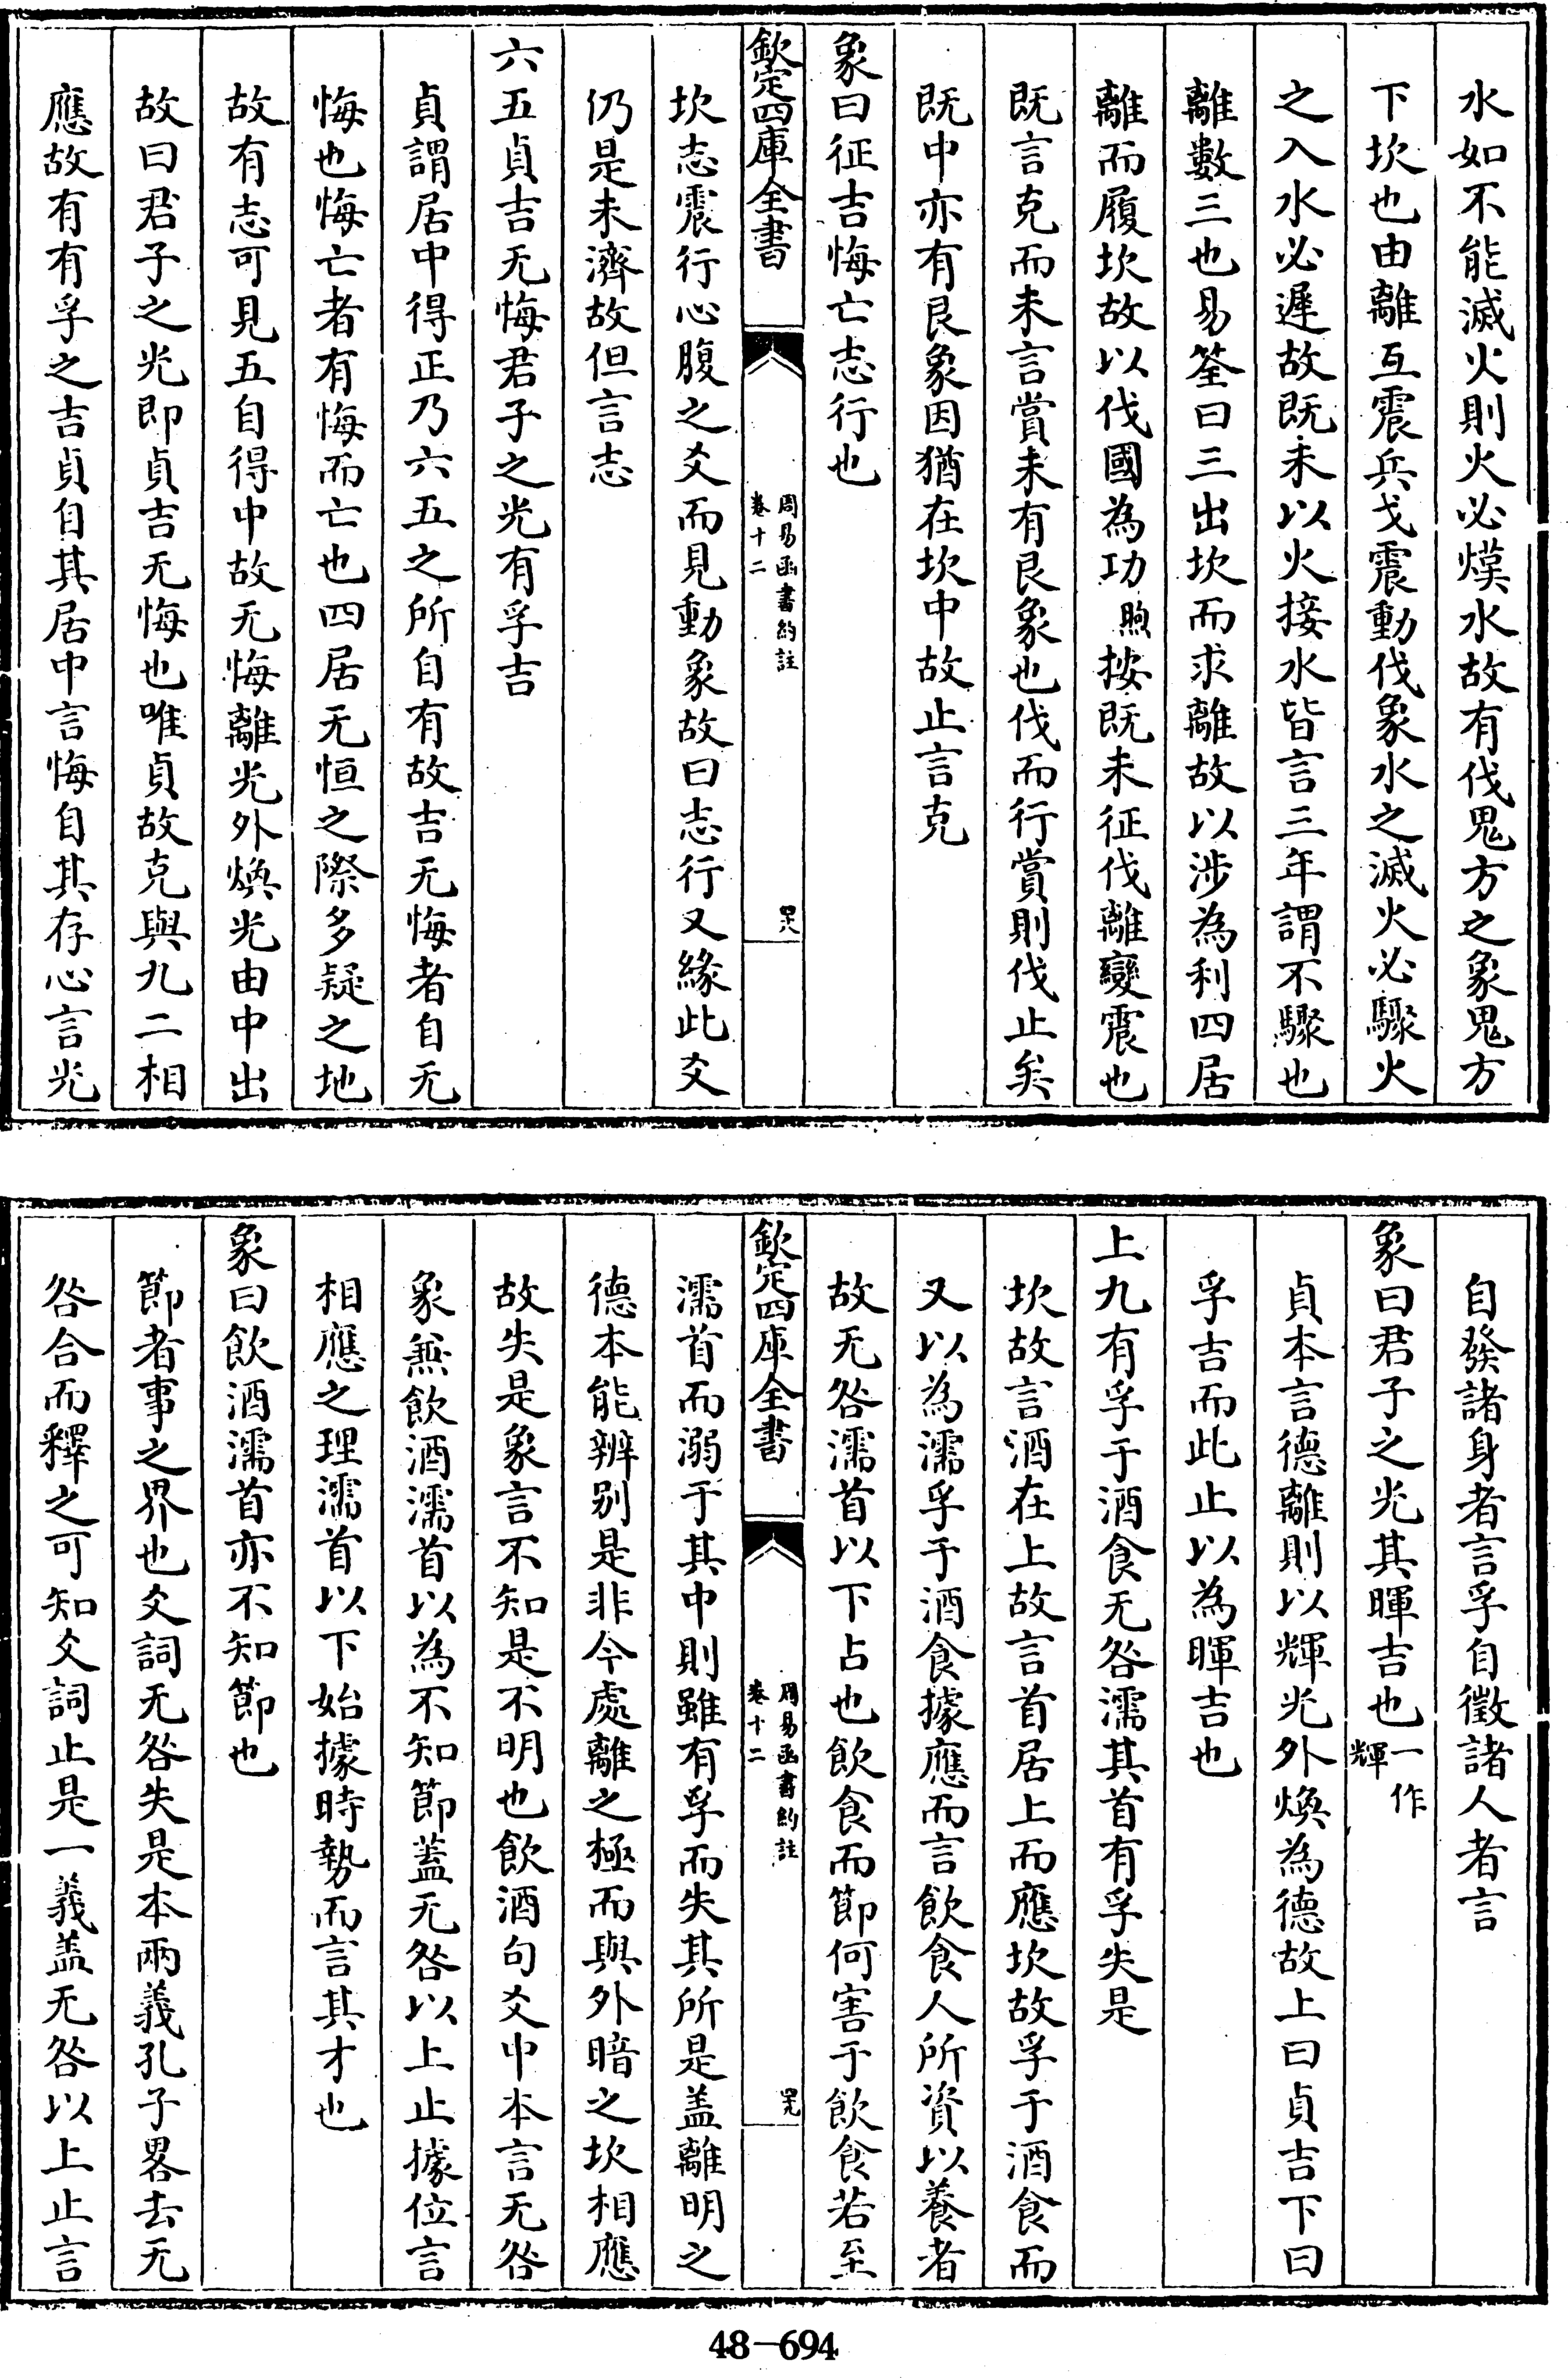 水如不能滅火則火必熯水故有伐鬼方之象鬼方
下坎也由離互震兵戈震動伐象水之滅火必驟火
之入水必遲故既未以火接水皆言三年謂不驟也
離數三也易筌曰三出坎而求離故以涉為利四居
離而履坎故以伐國為功煦按既未征伐離變震也
既言克而未言賞未有艮象也伐而行賞則伐止矣
既中亦有艮象因猶在坎中故止言克
象曰征吉悔亡志行也
欽定四庫全書
周易函書約註
卷十二
坎志震行心腹之爻而見動象故曰志行又緣此爻
仍是未濟故但言志
六五貞吉无悔君子之光有孚吉
貞謂居中得正乃六五之所自有故吉无悔者自无
悔也悔亡者有悔而亡也四居无恒之際多疑之地
故有志可見五自得中故无悔離光外煥光由中出
故曰君子之光即貞吉无悔也唯貞故克與九二相
應故有有孚之吉貞自其居中言悔自其存心言光
自發諸身者言孚自徵諸人者言
象曰君子之光其暉吉也一作輝
貞本言德離則以輝光外煥為德故上曰貞吉下曰
孚吉而此止以為暉吉也
上九有孚于酒食无咎濡其首有孚失是
坎故言酒在上故言首居上而應坎故孚于酒食而
又以為濡孚于酒食據應而言飲食人所資以養者
故无咎濡首以下占也飲食而節何害于飲食若至
欽定四庫全書
周易函書約註
卷十二
濡首而溺于其中則雖有孚而失其所是盖離明之
德本能辨别是非今處離之極而與外暗之坎相應
故失是象言不知是不明也飲酒句爻中本言无咎
象無飲酒濡首以為不知節蓋无咎以上止據位言
相應之理濡首以下始據時勢而言其才也
象曰飲酒濡首亦不知節也
節者事之界也爻詞无咎失是本兩義孔子畧去无
咎合而釋之可知爻詞止是一義盖无咎以上止言
48-694